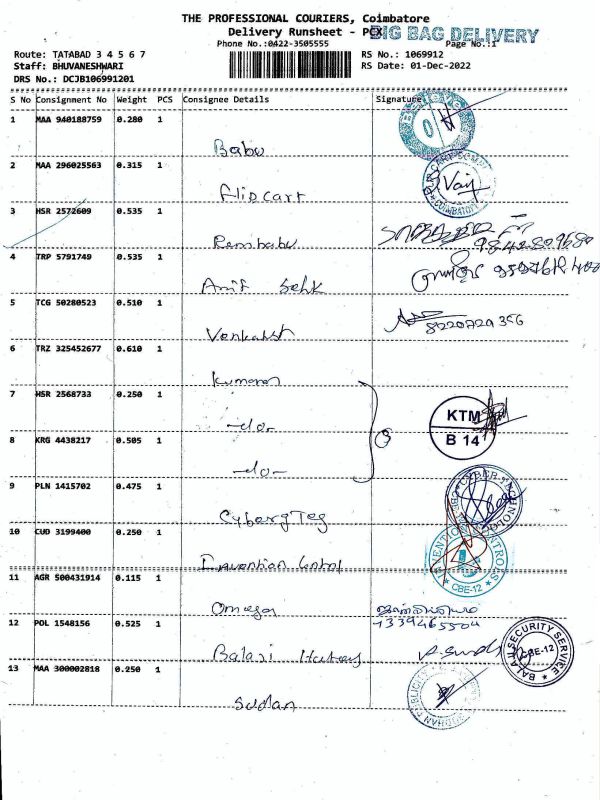 THE PROFESSIONAL COURIERS, Coimbatore
Delivery Runsheet - PCX BIG BAG DELIVERY
Phone No.:0422-3505555 Page No.:1
Route: TATABAD 3 4 5 6 7 RS No.: 1069912
Staff: BHUVANESHWARI RS Date: 01-Dec-2022
DRS No.: DCJB106991201
S No Consignment No Weight PCS Consignee Details Signature
1 MAA 940188759 0.280 1
Babu
2 MAA 296025563 0.315 1
Flipcart
COIMBATORE
3 HSR 2572609 0.535 1
Rembabu
9842809680
4 TRP 5791749 0.535 1
5 TCG 50280523 0.510 1
8220729356
Venkatst
6 TRZ 325452677 0.610 1
Kumaran
7 HSR 2568733 0.250 1
-do-
KTM
B 14
8 KRG 4438217 0.505 1
-do-
9 PLN 1415702 0.475 1
CyborgTeg
10 CUD 3199400 0.250 1
CBE-12
Invention Control
11 AGR 500431914 0.115 1
Omega
12 POL 1548156 0.525 1
BALAJI SECURITY SERVICE
CBE-12
Balaji
13 MAA 300002818 0.250 1
Sudan